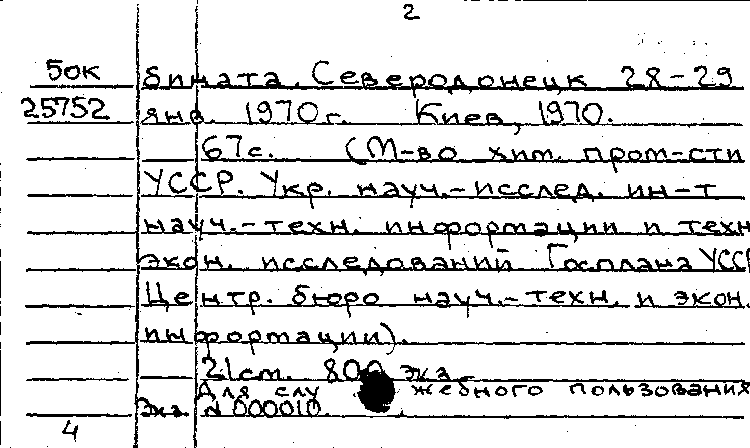 2
50к бината. Северодонецк 28-29
25752 янв. 1970г. Киев, 1970.
67с. (М-во хим. пром-сти
УССР. Укр. науч.-исслед. ин-т
науч.-техн. информации и техн
экон. исследований Госплана УССР
Центр. бюро науч.-техн. и экон.
информации).
21см. 800 экз.
Для служебного пользования
Экз. N 000010.
4